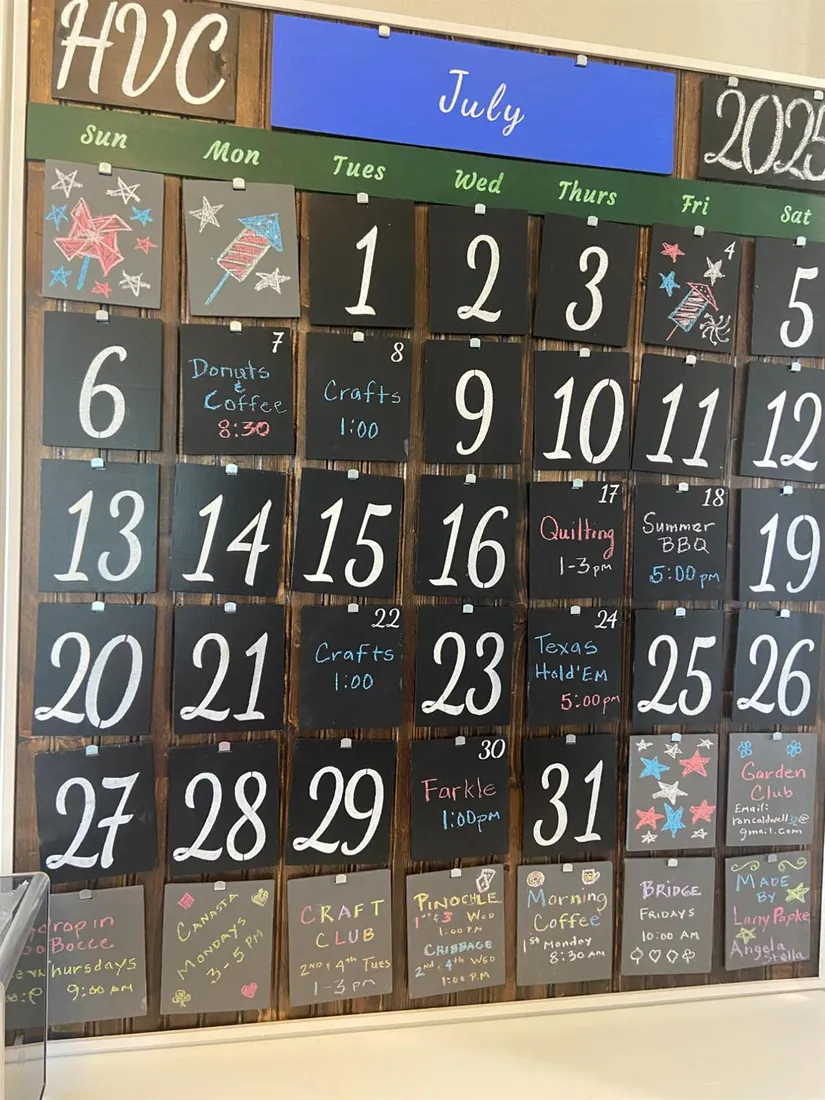 HVC
July
2025
Sun Mon Tues Wed Thurs Fri Sat
1 2 3 4 5
6
7
Donuts
&
Coffee
8:30
8
Crafts
1:00
9 10 11 12
13 14 15 16
17
Quilting
1-3pm
18
Summer
BBQ
5:00pm
19
20 21
22
Crafts
1:00
23
24
Texas
Hold'EM
5:00pm
25 26
27 28 29
30
Farkle
1:00pm
31
Garden
Club
Email:
gmail.com
Bocce
hursdays
9:00 AM
CANASTA
MONDAYS
3-5 PM
CRAFT
CLUB
2nd & 4th Tues
1-3pm
PINOCHLE
1st & 3 WED
1:00 PM
CRIBBAGE
2nd & 4th WED
1:00 P.M
Morning
Coffee
1st Monday
8:30 AM
BRIDGE
FRIDAYS
10:00 AM
MADE
BY
Larry Papke
Angela
Stella